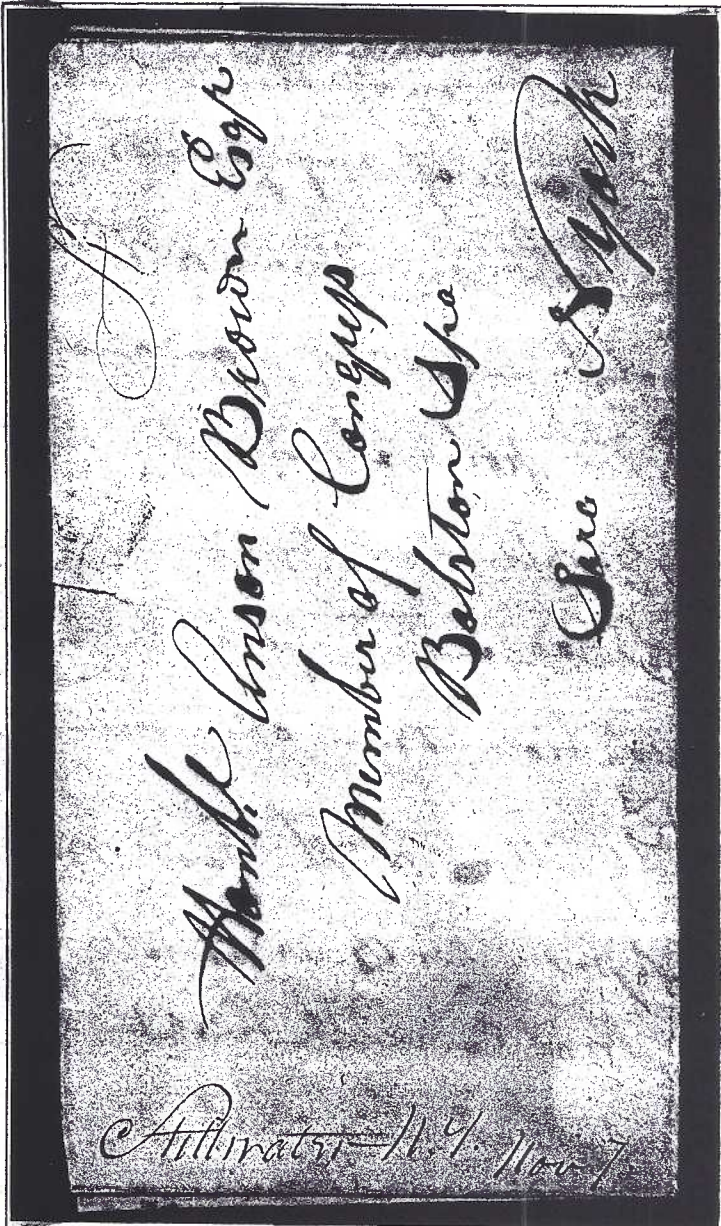 Stillwater N.Y. Nov 7
Honble Anson Brown Esqr
Member of Congress
Balston Spa
Sara N York